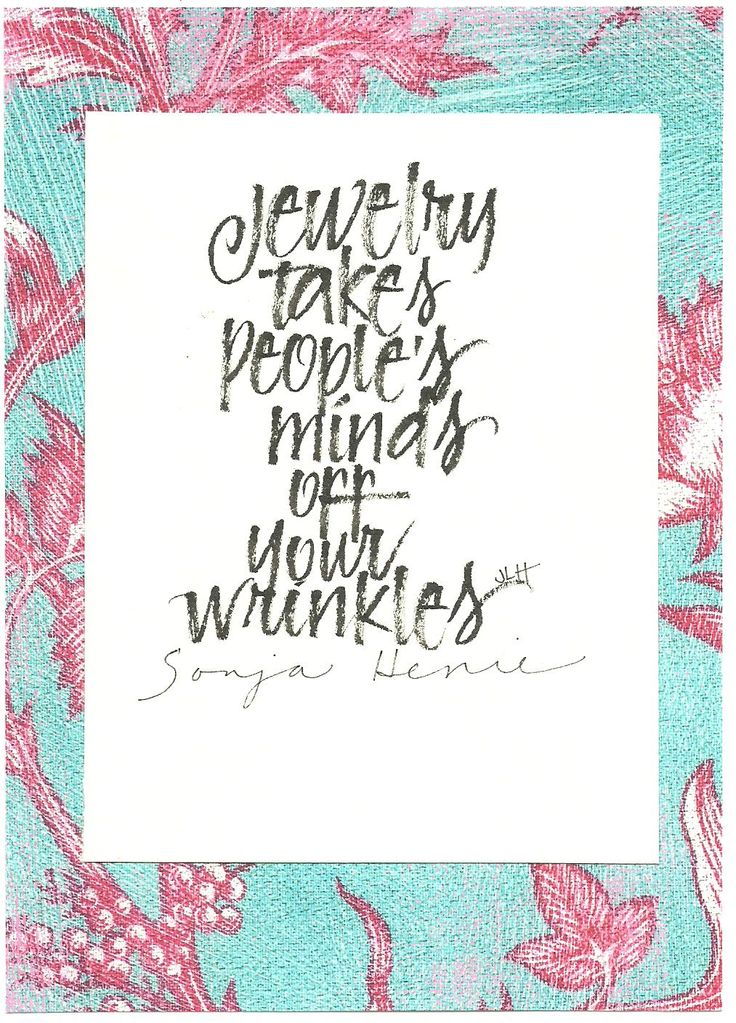 Jewelry
takes
people's
minds
off
your
wrinkles
JLH
Sonja Henie